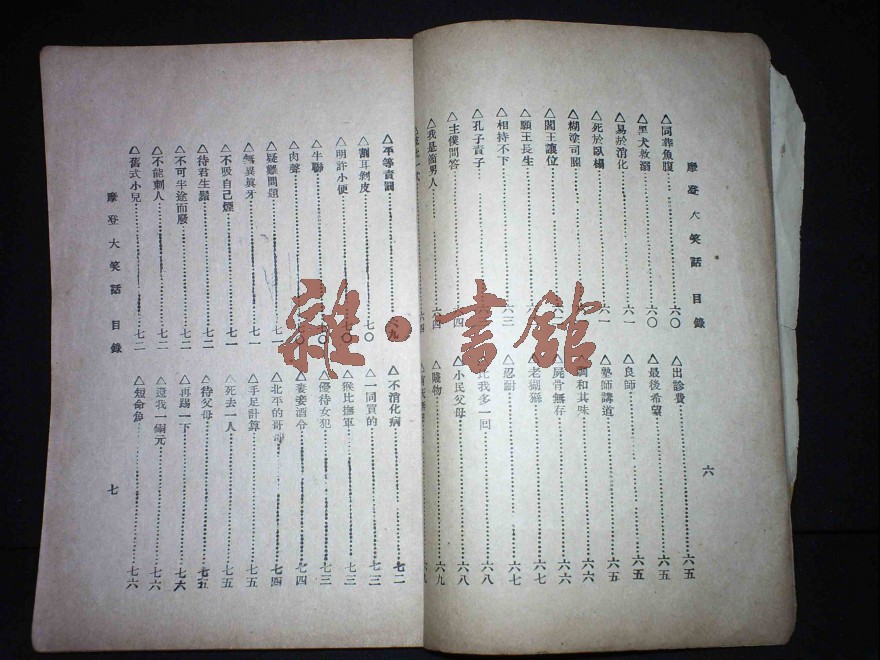 摩登大笑話 目錄
△同葬魚腹……六〇
△黑犬救溺……六〇
△易於消化……六一
△死於臥榻……六一
△糊塗司閽
△閻王讓位
△願王長生
△相持不下……六三
△孔子責子
△主僕問答……六四
△我是箇男人……六四
△出診費……六五
△最後希望……六五
△良師……六五
△塾師講道……六五
調和其味……六六
屍骨無存……六六
老猢猻……六七
△忍耐……六七
比我多一回……六八
△小民父母……六八
△賤物……六九
六
△平等責罰……六九
△割耳剝皮……七〇
△明許小便……七〇
△牛聯
△肉聲
△疑難問題……七一
△無異眞牙……七一
△不吸自己煙……七一
△待君生鬚……七二
△不可半途而廢……七二
△不能刺人……七二
△舊式小兒……七二
摩登大笑話 目錄
△不消化病……七二
△一同買的……七三
△猴比撫軍……七三
△優待女犯……七三
△妻妾酒令……七四
△北平的哥哥……七四
△手足計算……七五
△死去一人……七五
△待父母……七五
△再踢一下……七六
△還我一個元……七六
△短命爺……七六
七
雜·書館